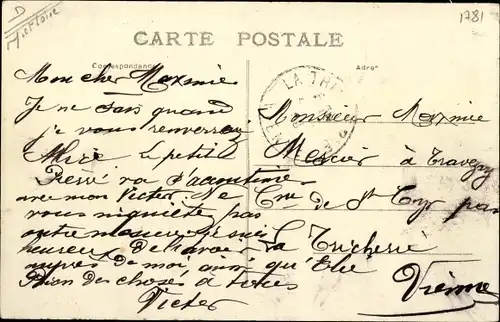 D
M et Loire
1781
CARTE POSTALE
Correspondance
Adresse
LA TRI
Mon cher Maxime
Je ne sais quand
je vous renverrai
le petit
Pierre va s'acoutumé
avec mon Victor. Ne
vous niquiété pas
votre
heureux De
auprès de moi, ainsi qu'Elie
Bien des choses à tous
Victor
Monsieur Maxime
Mercier à Travegy
Cne de St Cyr par
La Tricherie
Vienne